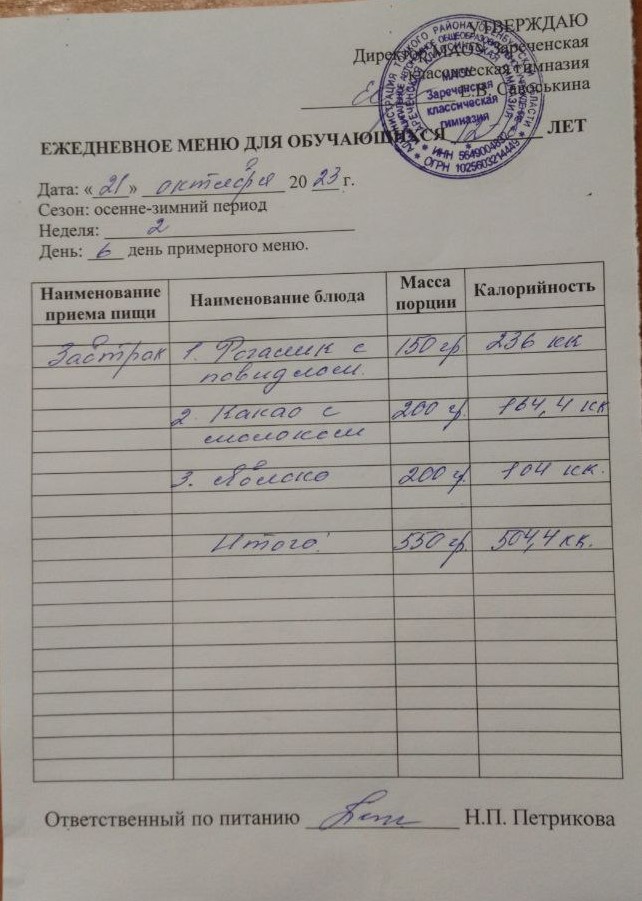 УТВЕРЖДАЮ
Директор МАОУ Зареченская
классическая гимназия
Е.В. Савоськина
МАОУ
Зареченская
классическая
гимназия
* ИНН 5649004800 *
* ОГРН 1025603214449 *
ЕЖЕДНЕВНОЕ МЕНЮ ДЛЯ ОБУЧАЮЩИХСЯ 12 ЛЕТ
Дата: «21» октября 2023 г.
Сезон: осенне-зимний период
Неделя: 2
День: 6 день примерного меню.
Наименование приема пищи Наименование блюда Масса порции Калорийность
Завтрак 1. Рогалик с 150 гр. 236 кк
повидлом.
2. Какао с 200 гр. 164,4 кк
молоком
3. Яблоко 200 гр. 104 кк.
Итого: 550 гр. 504,4 кк.
Ответственный по питанию Н.П. Петрикова